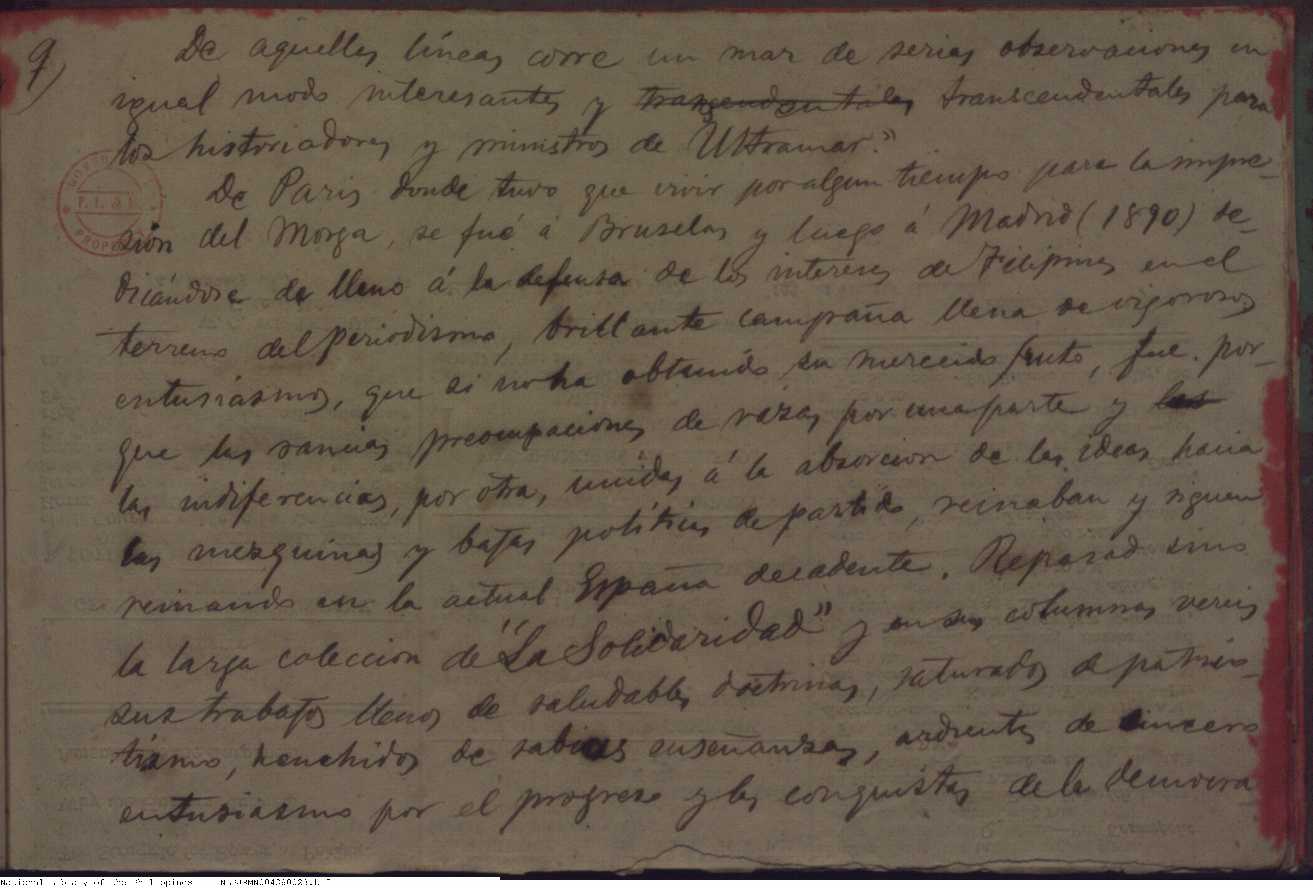 9)
De aquellas líneas corre un mar de serias observaciones en
igual modo interesantes y transcendentales para
los historiadores y ministros de Ultramar."
De Paris donde tuvo que vivir por algun tiempo para la impre-
sión del Morga, se fué á Bruselas y luego á Madrid (1890) de-
dicándose de lleno á la defensa de los intereses de Filipinas en el
terreno del periodismo, brillante campaña llena de vigorosos
entusiasmos, que si no ha obtenido su merecido fruto, fue por-
que las rancias preocupaciones de razas por una parte y las
las indiferencias, por otra, unidas á la absorcion de las ideas hacia
las mezquinas y bajas políticas de partido, reinaban y siguen
reinando en la actual España decadente. Repasad sino
la larga coleccion de "La Solidaridad" y en sus columnas vereis
sus trabajos llenos de saludables doctrinas, saturados de patrio-
tismo, henchidos de sabias enseñanzas, ardientes de sincero
entusiasmo por el progreso y las conquistas de la democra
P. I. & I.
PROPERTY
National Library of the Philippines